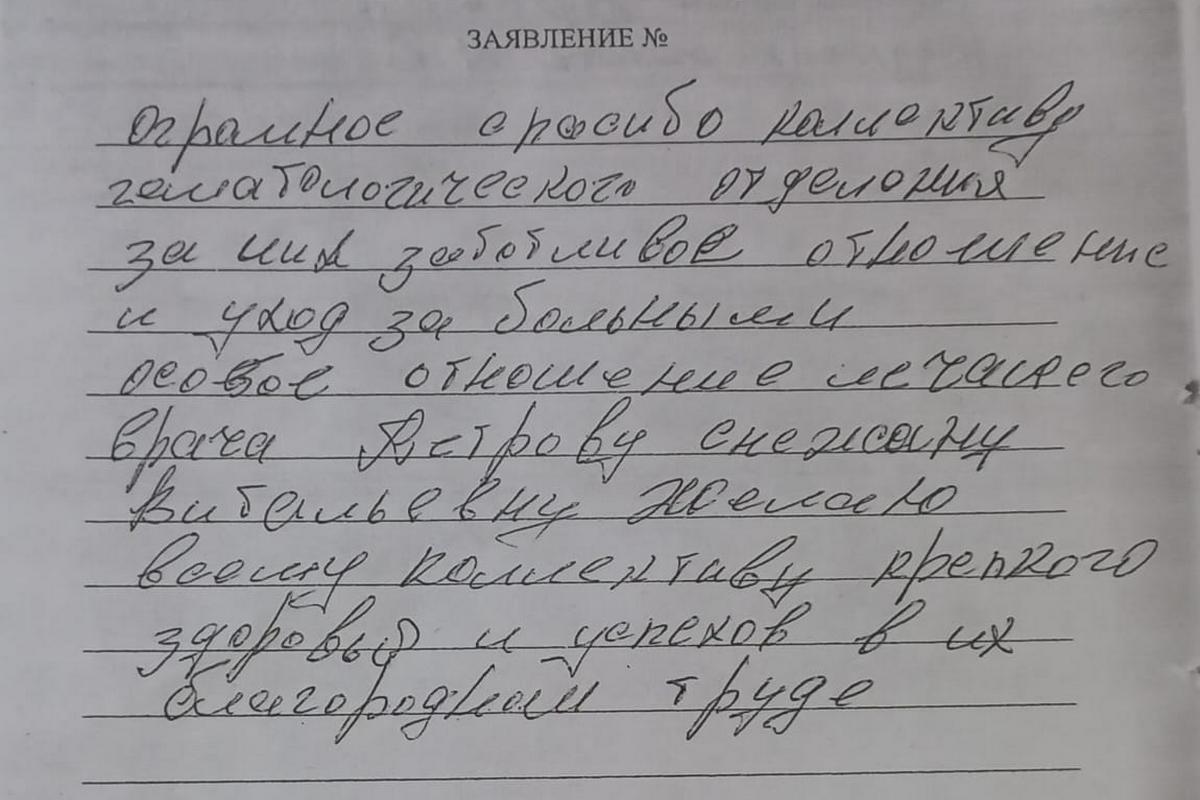 ЗАЯВЛЕНИЕ №
ограмное спасибо коллективу
гематологического отделения
за их заботливое отношение
и уход за больными
особое отношение лечащего
врача Ястрову снежану
Витальевну Желаю
всему коллективу крепкого
здоровья и успехов в их
благородном труде